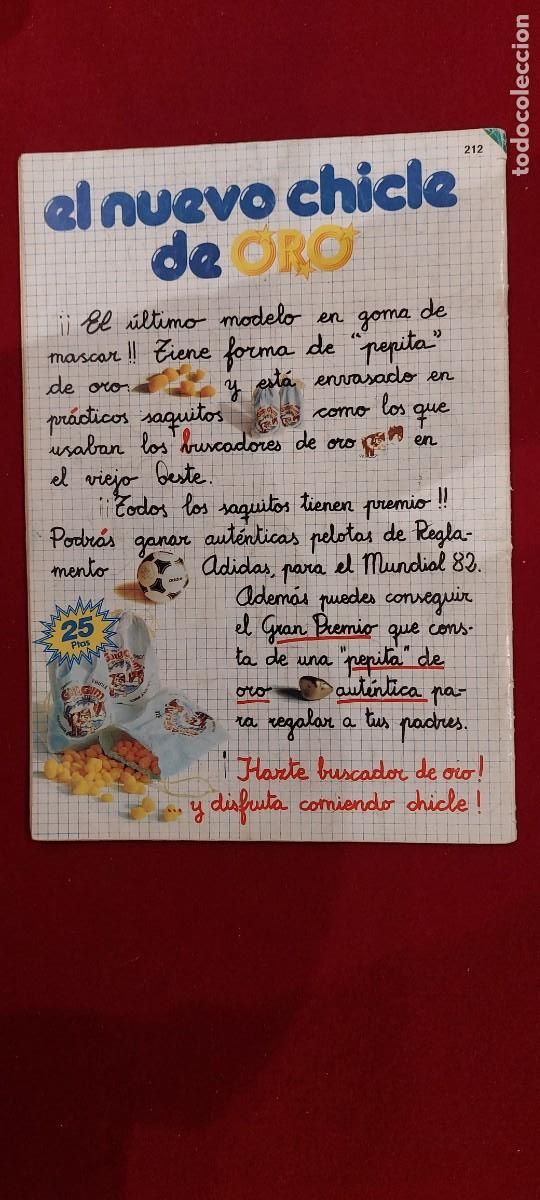 todocoleccion
212
el nuevo chicle
de ORO
¡¡ El último modelo en goma de
mascar!! Tiene forma de "pepita"
de oro, y está envasado en
prácticos saquitos como los que
usaban los buscadores de oro en
el viejo Oeste.
¡¡Todos los saquitos tienen premio!!
Podrás ganar auténticas pelotas de Regla-
mento Adidas, para el Mundial 82.
Además puedes conseguir
el Gran Premio que cons-
ta de una "pepita" de
oro auténtica pa-
ra regalar a tus padres.
25
Ptas
¡Hazte buscador de oro!
... y disfruta comiendo chicle!